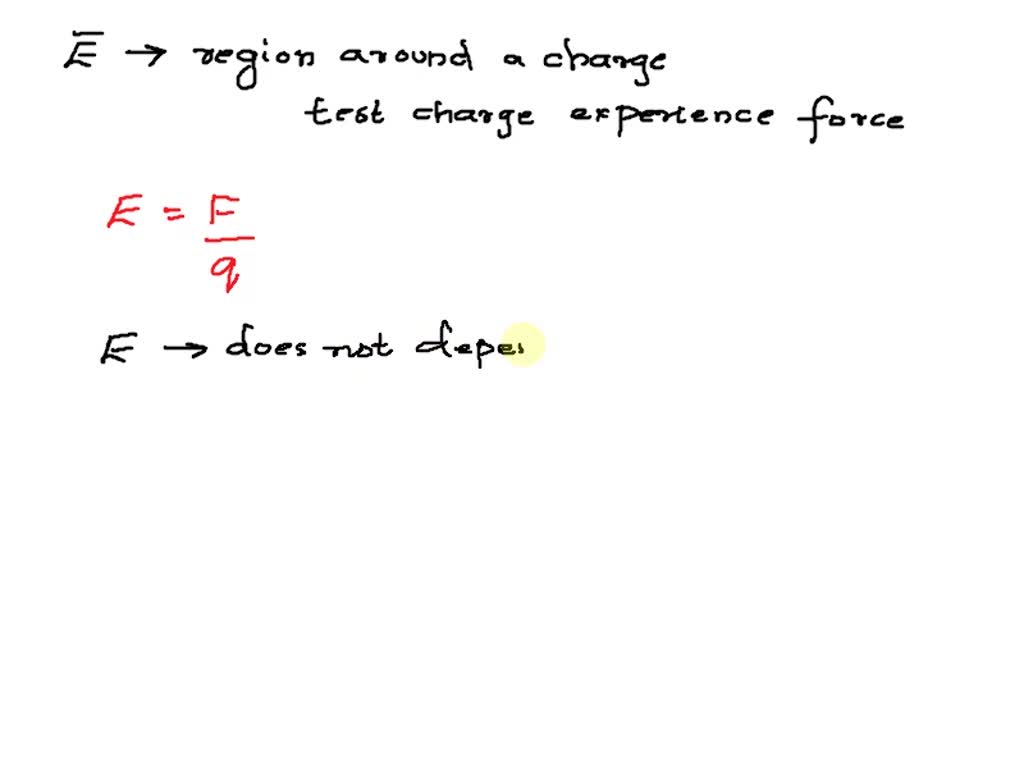 E̅ → region around a charge
test charge experience force
E = F
q
E → does not depe